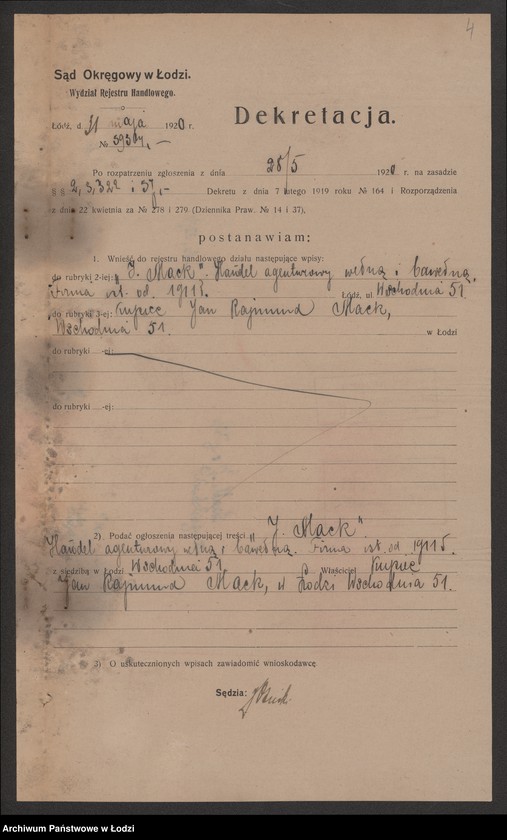 4
Sąd Okręgowy w Łodzi.
Wydział Rejestru Handlowego.
Łódź, d. 31 maja 1920 r.
Dekretacja.
№
Po rozpatrzeniu zgłoszenia z dnia 28/5 1920 r. na zasadzie
Dekretu z dnia 7 lutego 1919 roku № 164 i Rozporządzenia
z dnia 22 kwietnia za № 278 i 279 (Dziennika Praw. № 14 i 37),
postanawiam:
1. Wnieść do rejestru handlowego działu następujące wpisy:
do rubryki 2-iej: "J. Mack". Handel agenturowy wełną i bawełną.
Firma ist. od. 1911 r. Łódź, ul Wschodnia 51.
do rubryki 3-ej: Kupiec Jan Rajmund Mack,
Wschodnia 51. w Łodzi
do rubryki -ej:
do rubryki ...-ej:
2) Podać ogłoszenia następującej treści „J. Mack"
Handel agenturowy wełną i bawełną. Firma ist. od. 1911 r.
z siedzibą w Łodzi Wschodnia 51. Właściciel Kupiec
Jan Rajmund Mack, w Łodzi Wschodnia 51.
3) O uskutecznionych wpisach zawiadomić wnioskodawcę
Sędzia:
Archiwum Państwowe w Łodzi